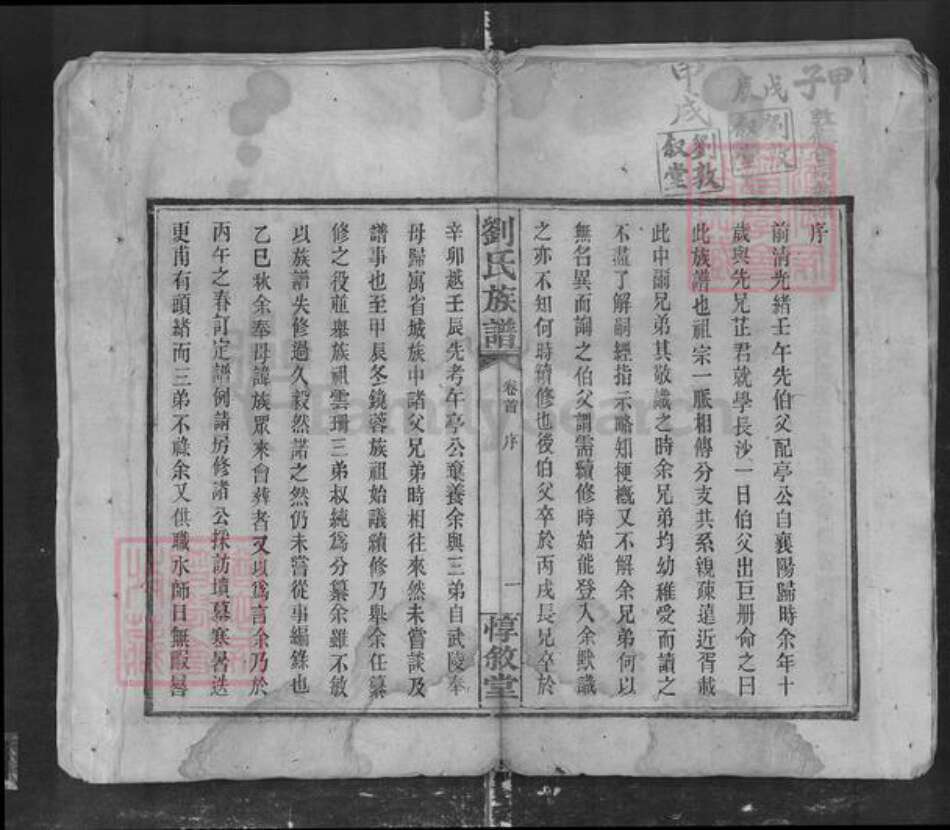 甲子
戊辰
劉敦
敘堂
甲戌
劉敦
敘堂
序
前清光緒壬午先伯父配亭公自襄陽歸時余年十
歲與先兄芷君就學長沙一日伯父出巨册命之曰
此族譜也祖宗一脈相傳分支共系親疎遠近胥載
此中爾兄弟其敬識之時余兄弟均幼稚受而讀之
不盡了解嗣經指示略知梗概又不解余兄弟何以
無名異而詢之伯父謂需續修時始能登入余默識
之亦不知何時續修也後伯父卒於丙戌長兄卒於
劉氏族譜
卷首
序
一
惇敘堂
辛卯越壬辰先考午亭公棄養余與三弟自武陵奉
母歸寓省城族中諸父兄弟時相往來然未嘗談及
譜事也至甲辰冬鏡蓉族祖始議續修乃舉余任纂
修之役並舉族祖雲珊三弟叔純為分纂余雖不敏
以族譜失修過久毅然諾之然仍未嘗從事編錄也
乙巳秋余奉母諱族眾來會葬者又以為言余乃於
丙午之春訂定譜例請房修諸公採訪墳墓寒暑迭
更甫有頭緒而三弟不祿余又供職水師日無暇晷